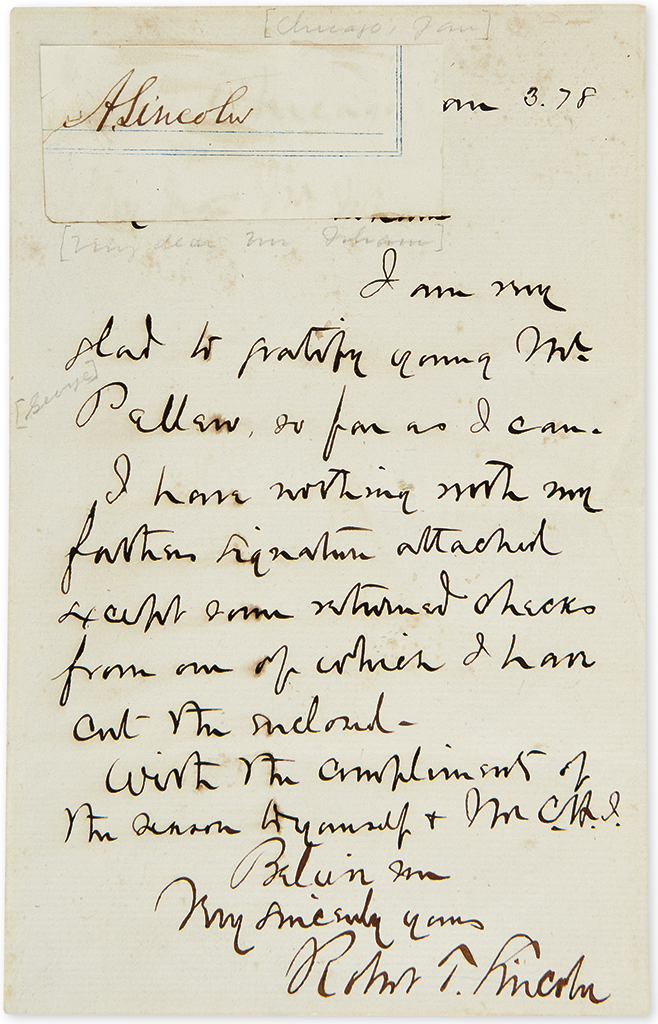 [Chicago, Jan]
A. Lincoln
Jan 3. 78
[My dear Mr Isham]
I am very
glad to gratify young Mr.
[George]
Pellew, so far as I can.
I have nothing with my
fathers signature attached
except some returned checks
from one of which I have
cut the enclosed -
With the compliments of
the season to yourself & Mr C.H.I.
Believe me
Very sincerely yours
Robert T. Lincoln